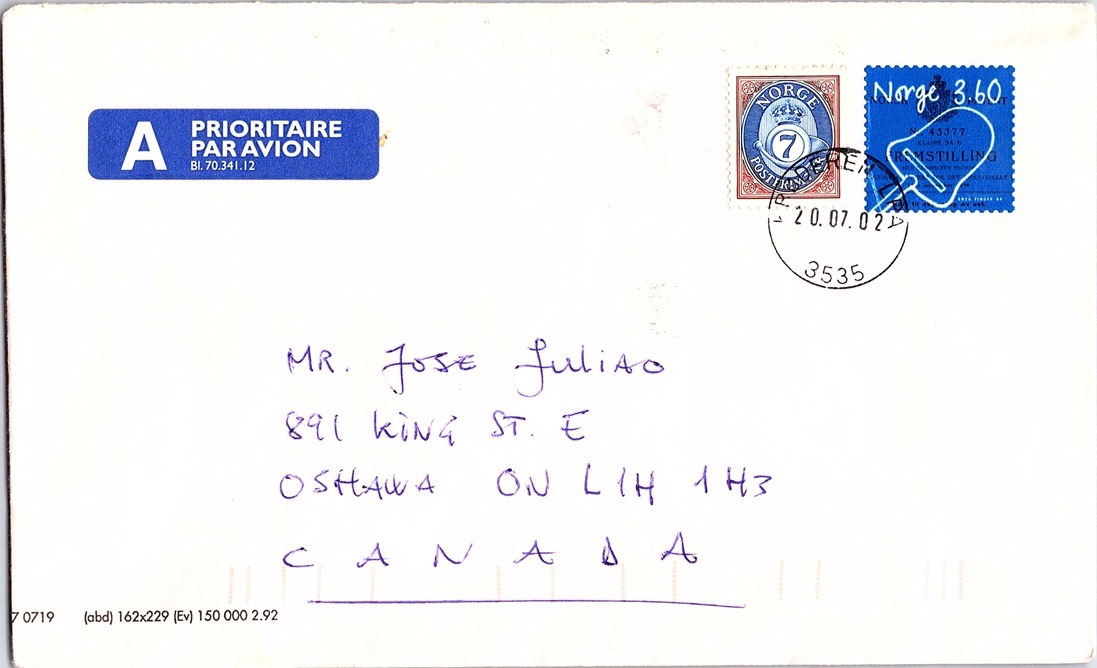 A PRIORITAIRE
PAR AVION
Bl. 70.341.12
NORGE
7
POSTFRIM
Norge 3.60
No 43377
KLASSE 34 b
FREMSTILLING
KRØDEREN LBA
20.07.02
3535
MR. JOSE JULIAO
891 KING ST. E
OSHAWA ON L1H 1H3
CANADA
7 0719 (abd) 162x229 (Ev) 150 000 2.92